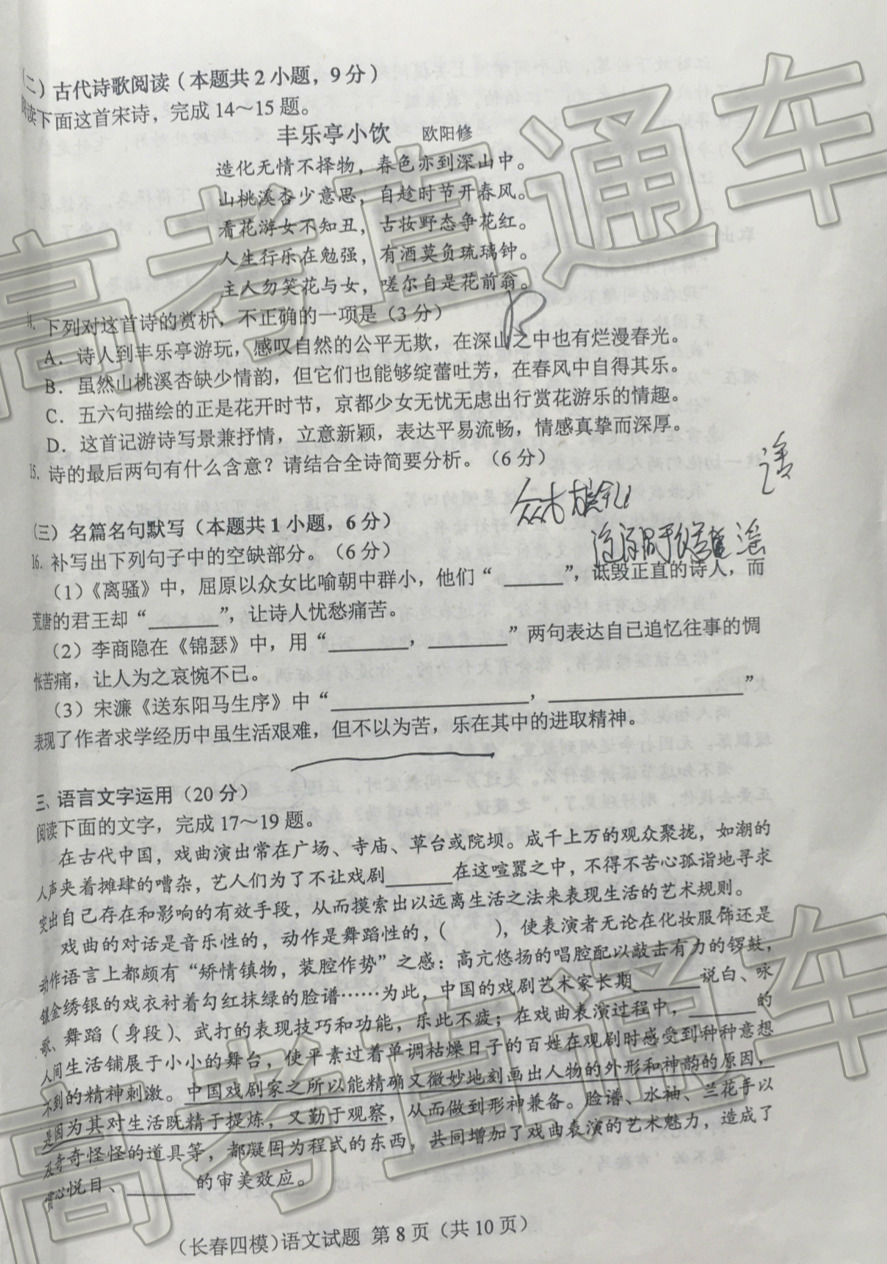 (二)古代诗歌阅读(本题共2小题,9分)
阅读下面这首宋诗,完成14～15题。
丰乐亭小饮 欧阳修
造化无情不择物,春色亦到深山中。
山桃溪杏少意思,自趁时节开春风。
看花游女不知丑,古妆野态争花红。
人生行乐在勉强,有酒莫负琉璃钟。
主人勿笑花与女,嗟尔自是花前翁。
14. 下列对这首诗的赏析,不正确的一项是(3分)
A. 诗人到丰乐亭游玩,感叹自然的公平无欺,在深山之中也有烂漫春光。
B. 虽然山桃溪杏缺少情韵,但它们也能够绽蕾吐芳,在春风中自得其乐。
C. 五六句描绘的正是花开时节,京都少女无忧无虑出行赏花游乐的情趣。
D. 这首记游诗写景兼抒情,立意新颖,表达平易流畅,情感真挚而深厚。
15. 诗的最后两句有什么含意?请结合全诗简要分析。(6分)
(三)名篇名句默写(本题共1小题,6分)
16. 补写出下列句子中的空缺部分。(6分)
(1)《离骚》中,屈原以众女比喻朝中群小,他们“______”,诋毁正直的诗人,而
荒唐的君王却“_______”,让诗人忧愁痛苦。
(2)李商隐在《锦瑟》中,用“________,________”两句表达自己追忆往事的惆
怅苦痛,让人为之哀惋不已。
(3)宋濂《送东阳马生序》中“____________________,____________________”
表现了作者求学经历中虽生活艰难,但不以为苦,乐在其中的进取精神。
三、语言文字运用(20分)
阅读下面的文字,完成17～19题。
在古代中国,戏曲演出常在广场、寺庙、草台或院坝。成千上万的观众聚拢,如潮的
人声夹着摊肆的嘈杂,艺人们为了不让戏剧______在这喧嚣之中,不得不苦心孤诣地寻求
突出自己存在和影响的有效手段,从而摸索出以远离生活之法来表现生活的艺术规则。
戏曲的对话是音乐性的,动作是舞蹈性的,( ),使表演者无论在化妆服饰还是
动作语言上都颇有“矫情镇物,装腔作势”之感:高亢悠扬的唱腔配以敲击有力的锣鼓,
镶金绣银的戏衣衬着勾红抹绿的脸谱……为此,中国的戏剧艺术家长期______说白、咏
歌、舞蹈(身段)、武打的表现技巧和功能,乐此不疲;在戏曲表演过程中,______的
人间生活铺展于小小的舞台,使平素过着单调枯燥日子的百姓在观剧时感受到种种意想
不到的精神刺激。中国戏剧家之所以能精确又微妙地刻画出人物的外形和神韵的原因,
是因为其对生活既精于提炼,又勤于观察,从而做到形神兼备。脸谱、水袖、兰花手以
及奇奇怪怪的道具等,都凝固为程式的东西,共同增加了戏曲表演的艺术魅力,造成了
赏心悦目、______的审美效应。
(长春四模)语文试题 第8页(共10页)
高考直通车
高考直通车